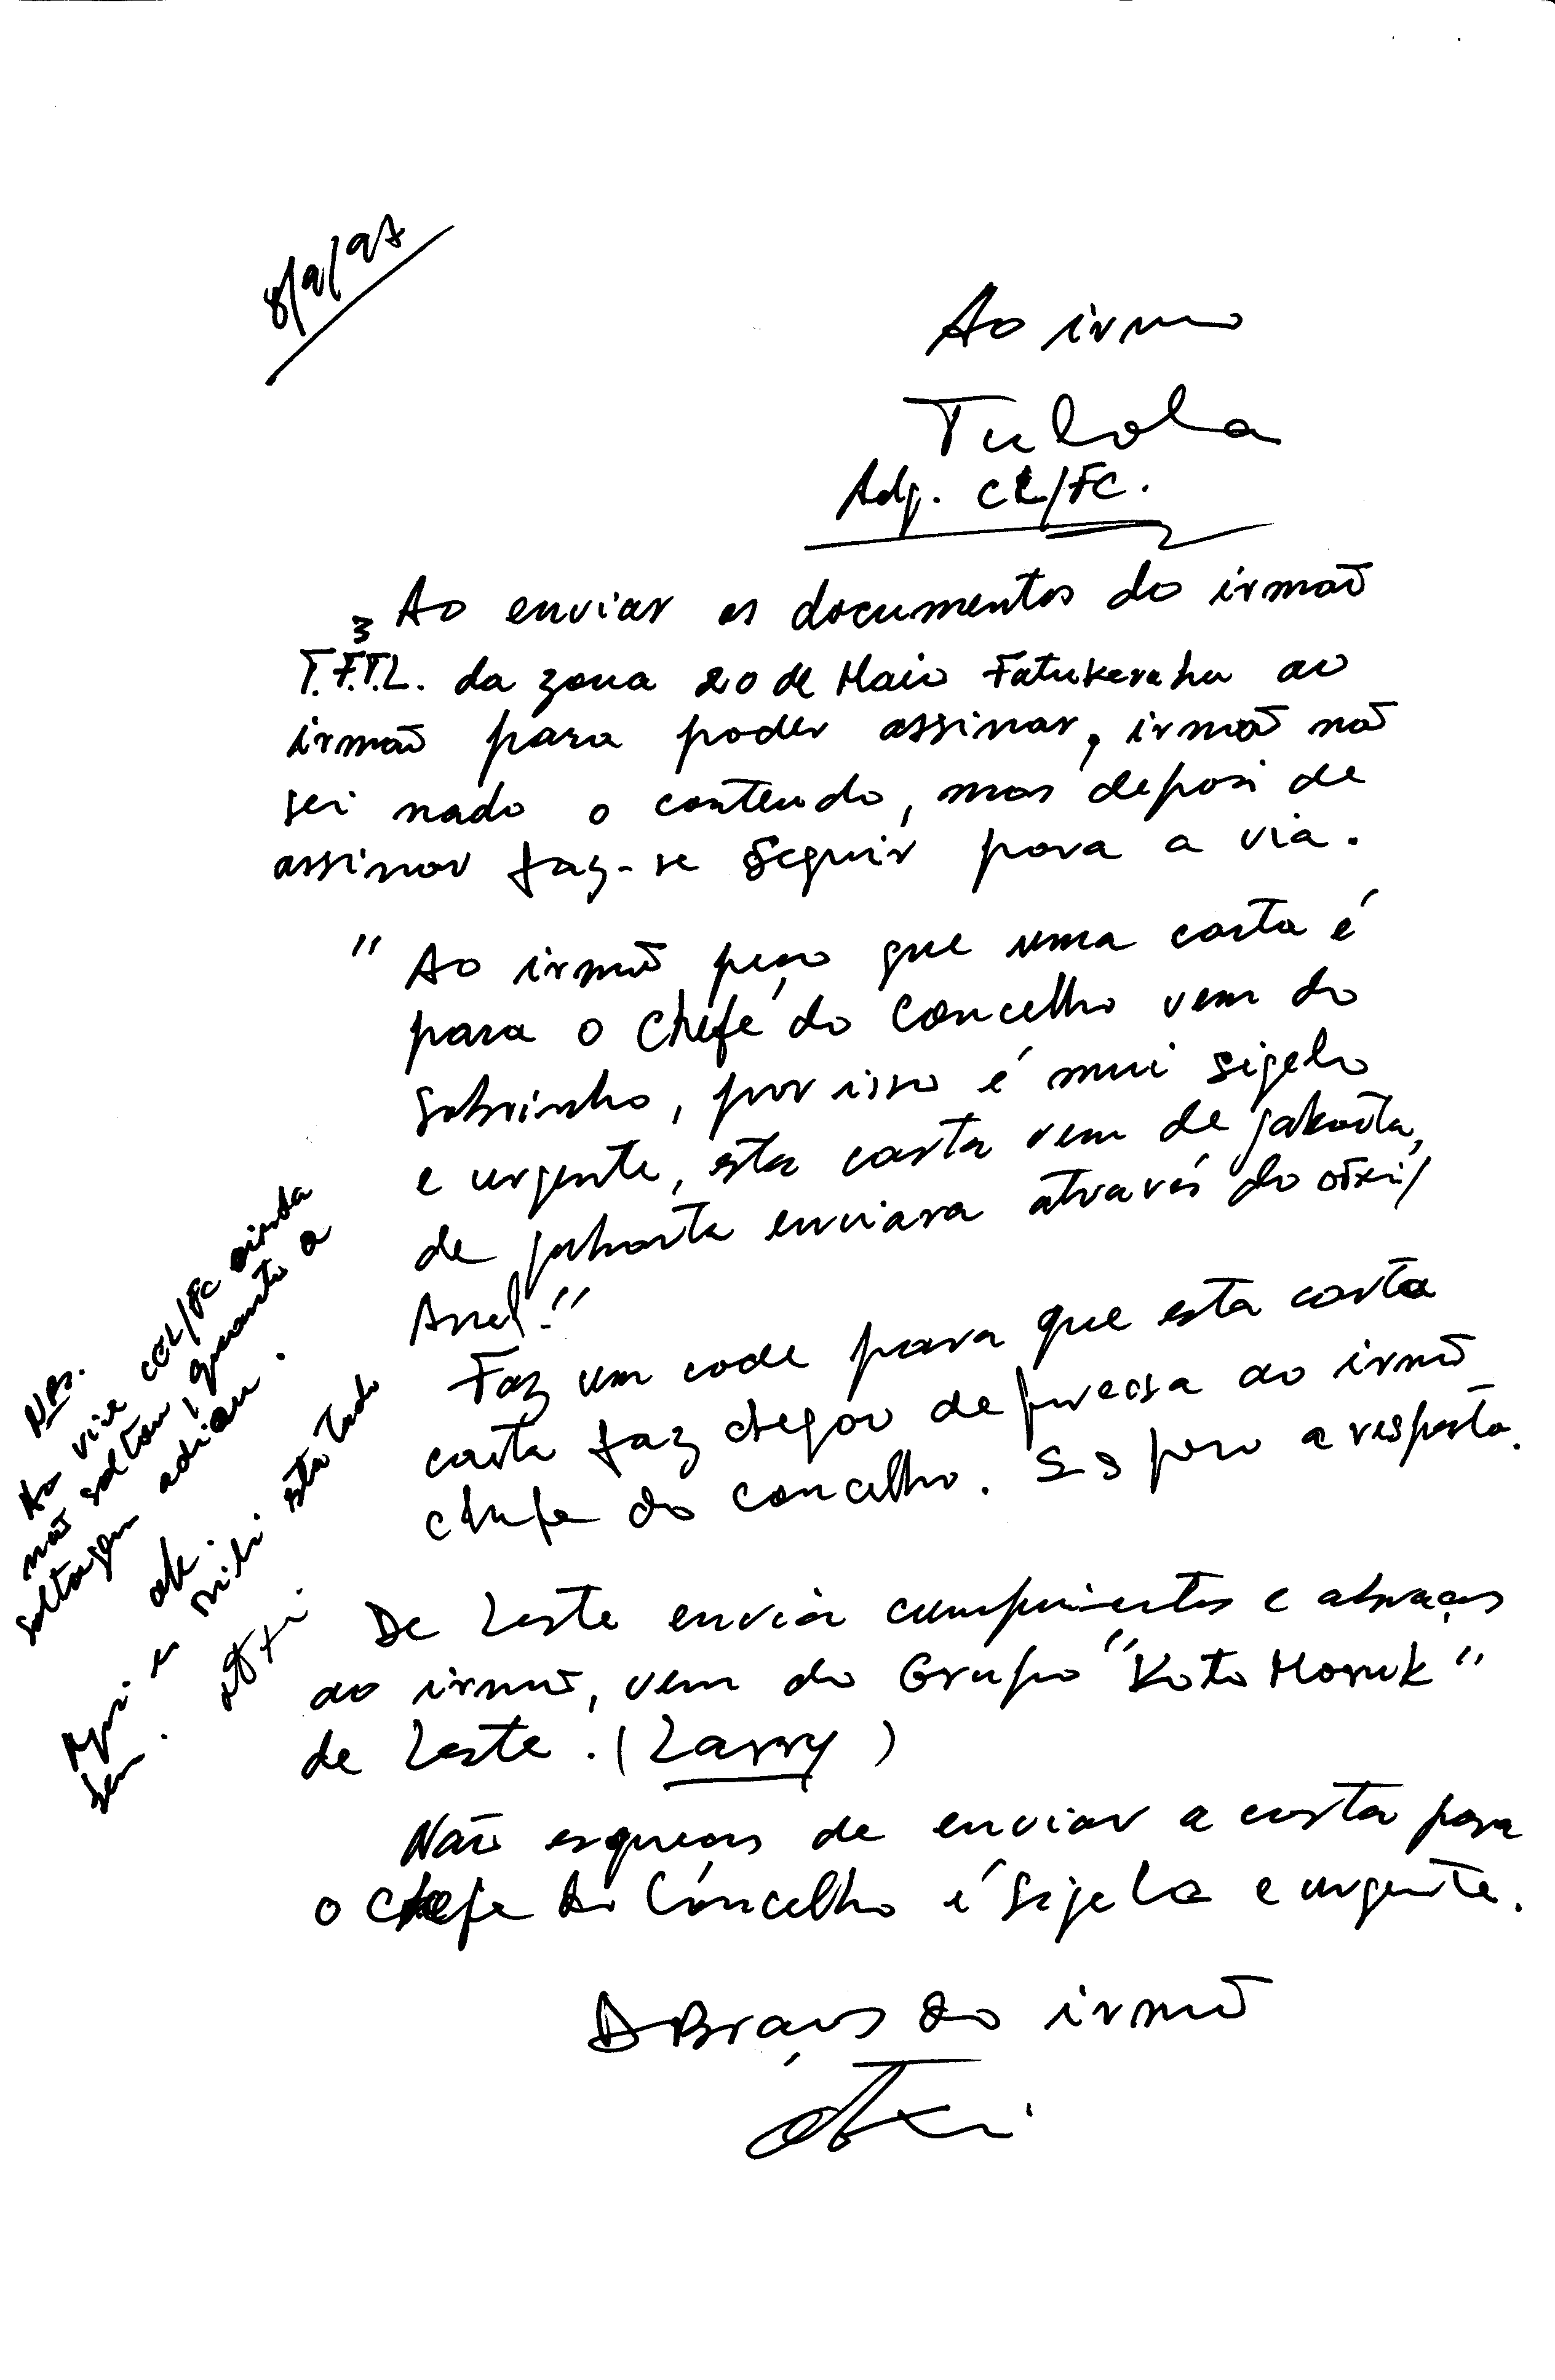 8/9/97
Ao irmão
Tulola
Adj. CL/FC.
Ao enviar os documentos do irmão
3
T.F.T.L. da zona 20 de Maio Fatukerahu ao
irmão para poder assinar, irmão não
sei nado o conteudo, mas deposi de
assinar faz-se seguir para a via.
" Ao irmão peço que uma carta é
para o Chefe do Concelho vem do
Sobrinho, por isso é mui sigelo
e urgente, esta carta vem de Jakarta,
de Jakarta enviara através do oTxi/
Anel."
Faz um code para que esta carta
carta faz chegar depressa ao irmão
chefe do concelho. espero a resposta.
De Leste envia cumprimentos e abraços
ao irmão, vem do Grupo "Koto Moruk"
de Leste. (Larry)
Não esqueças de enviar a carta para
o Chefe do Concelho é sigela e urgente.
ABraços do irmão
oTxi
NBs.
Ao vice CEL/FC ainda
não saltou, quanto a
saltagem adiou.
ok.
Aqui em Dili está tudo
bem. oTxi